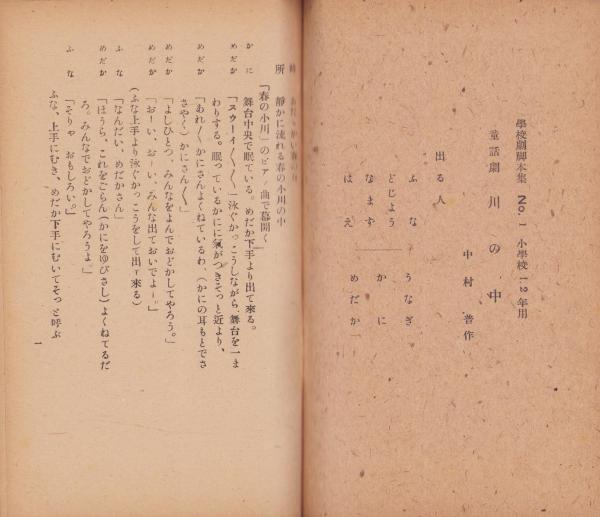 學校劇脚本集 No. 1 小學校 1.2 年用
童話劇 川の中
中村普作
出る人
ふな
どじよう
なまず
はえ
うなぎ
かに
めだか
所 靜かに流れる春の小川の中
「春の小川」のピア 曲で幕開く
かに 舞台中央で眠ている。めだか下手より出て來る。
めだか 「スウーイ〱〱〱」泳ぐかっこうしながら 舞台を一ま
わりする。眠っているかにに氣がつきそっと近より、
めだか 「あれ〱かにさんよくねているわ、(かにの耳もとでさ
さやく)かにさん〱」
めだか 「よしひとつ、みんなをよんでおどかしてやろう。」
めだか 「おーい、おーい、みんな出ておいでよー。」
(ふな上手より泳ぐかっこうをして出て來る)
ふな 「なんだい、めだかさん」
めだか 「ほうら、これをごらん(かにをゆびさし)よくねてるだ
ろ。みんなでおどかしてやろうよ」
ふな 「そりゃ おもしろい。」
ふな、上手にむき、めだか下手にむいてそっと呼ぶ
一